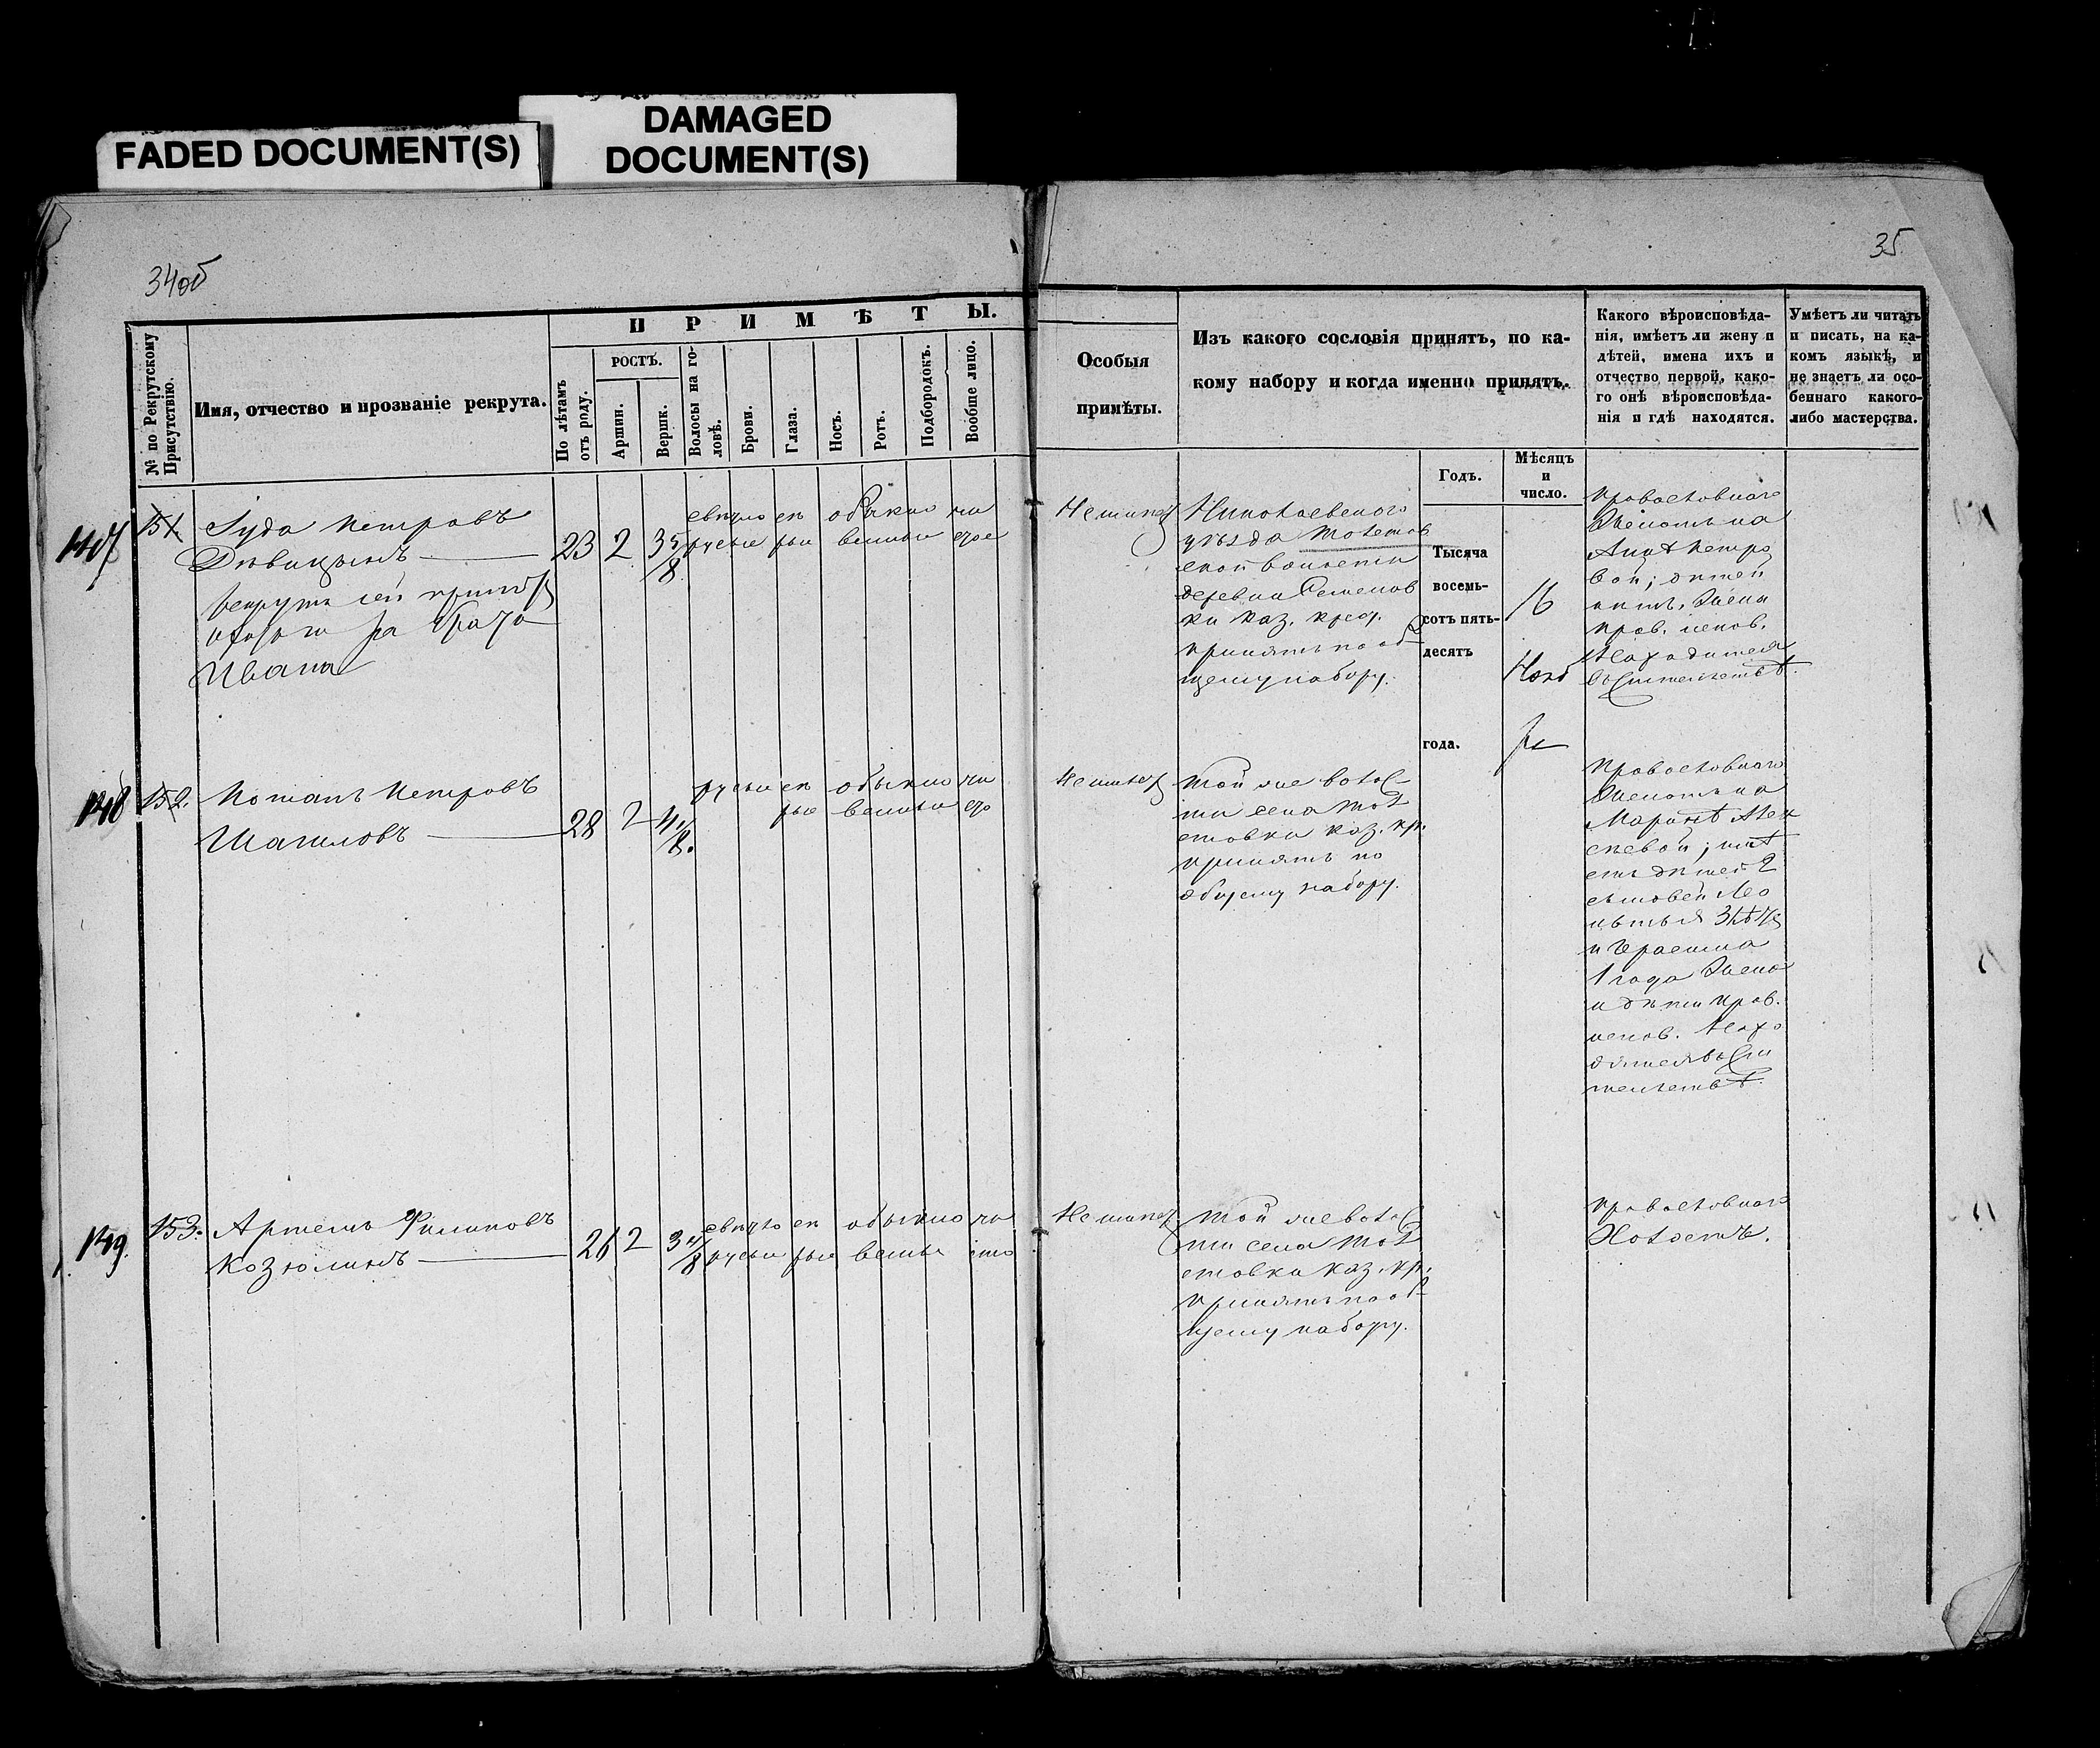 FADED DOCUMENT(S)
DAMAGED
DOCUMENT(S)
34об
35
№ по Рекрутскому
Присутствію.
Имя, отчество и прозваніе рекрута.
ПРИМѢТЫ.
По лѣтамъ
отъ роду.
РОСТЪ.
Аршин.
Вершк.
Волосы на го-
ловѣ.
Брови.
Глаза.
Носъ.
Ротъ.
Подбородокъ.
Вообще лицо.
Особыя
примѣты.
Изъ какого сословія принятъ, по ка-
кому набору и когда именно принятъ.
Годъ.
Мѣсяцъ
и
число.
Какого вѣроисповѣда-
нія, имѣетъ ли жену и
дѣтей, имена ихъ и
отчество первой, како-
го онѣ вѣроисповѣда-
нія и гдѣ находятся.
Умѣетъ ли читать
и писать, на ка-
комъ языкѣ, и
не знаетъ ли осо-
беннаго какого-
либо мастерства.
147
151
Іуда Петровъ
Дѣвицынъ
рекрутъ сей
за брата
Ивана
23 2 3 5/8
свѣтло сѣ обыкно чи
русые рые венные стое
Николаевскаго
уѣзда Толстов
ской волости
деревни Семенов
ки каз. крес.
принятъ по об
щему набору.
Тысяча
восемь-
сотъ пять-
десятъ
года.
16
Нояб
ря
Православнаго
Женатъ на
Петро
вой; дѣтей
нѣтъ. Жена
прав. испов.
Находится
въ жительствѣ.
148
152.
Потапъ Петровъ
Шатиловъ
28 2 4 1/8.
русые сѣ обыкно чи
рые венные сто
Той же волос
ти села Тол
стовки каз. кр.
принятъ по
общему набору.
Православнаго
Женатъ на
Маринѣ Алек
сѣевой; имѣ
етъ дѣтей 2
сыновей Ле
онтья 3 лѣтъ
и Герасима
1 года Жена
и дѣти прав.
испов. Нахо
дятся въ жи
тельствѣ.
149.
153.
Артемъ Филиповъ
Козюлинъ
21 2 3 4/8
свѣтло сѣ обыкно чи
русые рые венные сто
Той же волос
ти села Тол
стовки каз. кр.
принятъ по об
щему набору.
Православнаго
Холостъ.